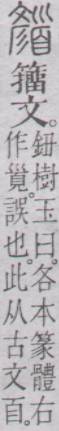 籀文。
鈕樹玉曰。各本篆體右
作誤也。此从古文百。